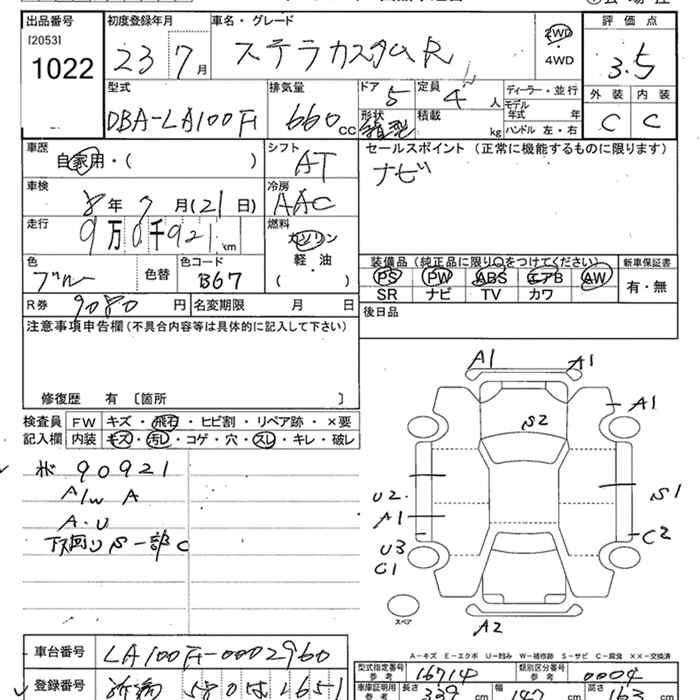 出品番号 初度登録年月 車名・グレード 評価点
[2053] 23 7月 ステラカスタムR 2WD 3.5
1022 4WD
外装 内装
型式 排気量 ドア 定員 ディーラー・並行
DBA-LA100F 660cc 5 4人 モデル年式 年 C C
形状 箱型 積載 kg ハンドル 左・右
車歴 シフト セールスポイント (正常に機能するものに限ります)
自家用・( ) AT ナビ
車検 冷房
8年7月(21日) AAC
走行 燃料
9万0千921km ガソリン
色 色コード 軽・油
ブルー 色替 B67 ( )
装備品 (純正品に限り○をつけてください) 新車保証書
PS PW ABS エアB AW 有・無
SR ナビ TV カワ
R券 9080円 名変期限 月 日 後日品
注意事項申告欄(不具合内容等は具体的に記入して下さい)
修復歴 有 〔箇所 〕
検査員 FW キズ・飛石・ヒビ割・リペア跡・×要
記入欄 内装 キズ・汚レ・コゲ・穴・スレ・キレ・破レ
90921
A/w A
A・U
下回りS一部C
A1 A1
A1
S2
U2 S1
A1
U3 C2
C1
スペア
A2
A-キズ E-エクボ U-凹み W-補修跡 S-サビ C-腐食 ××-交換済
車台番号 LA100F-0002960
型式指定番号 参考 16714 類別区分番号 参考 0004
登録番号 580 2651
車庫証明用 参考 長さ 339cm 幅 147cm 高さ 163cm